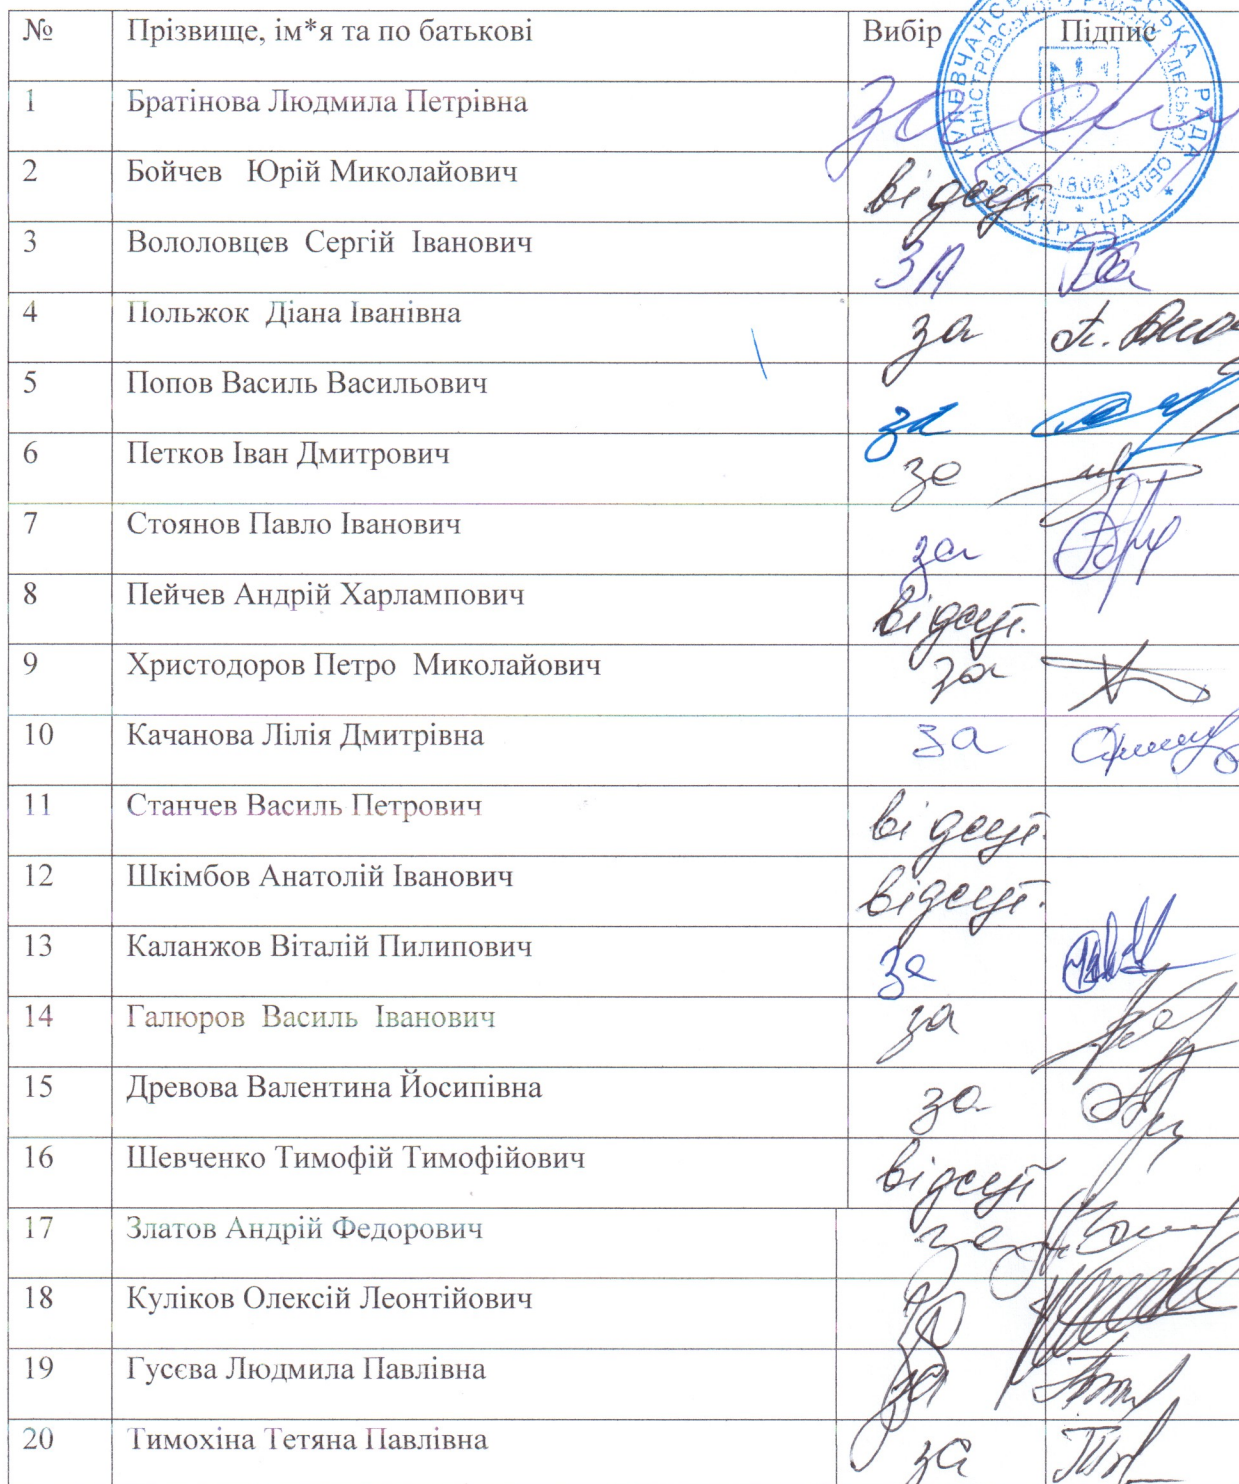 № Прізвище, ім*я та по батькові Вибір Підпис
1 Братінова Людмила Петрівна за
2 Бойчев Юрій Миколайович відсут.
3 Вололовцев Сергій Іванович ЗА
4 Польжок Діана Іванівна за
5 Попов Василь Васильович за
6 Петков Іван Дмитрович за
7 Стоянов Павло Іванович за
8 Пейчев Андрій Харлампович відсут.
9 Христодоров Петро Миколайович за
10 Качанова Лілія Дмитрівна за
11 Станчев Василь Петрович відсут.
12 Шкімбов Анатолій Іванович відсут.
13 Каланжов Віталій Пилипович за
14 Галюров Василь Іванович за
15 Древова Валентина Йосипівна за
16 Шевченко Тимофій Тимофійович відсут
17 Златов Андрій Федорович за
18 Куліков Олексій Леонтійович за
19 Гусєва Людмила Павлівна за
20 Тимохіна Тетяна Павлівна за
РАДА
ОБЛАСТІ
УКРАЇНА